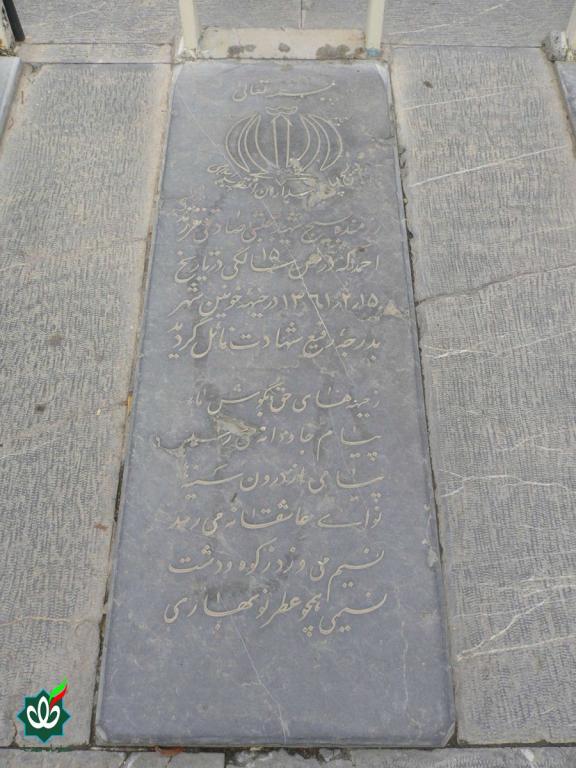 بسمه تعالی
رزمنده بسیج شهید مجتبی صادقی فرزند
احمد که در سن ۱۵ سالگی در تاریخ
۱۳۶۱/۲/۱۵ در جبهه خونین شهر
بدرجهٔ رفیع شهادت نائل گردید
زمینه‌های حق بگوش ما
پیام جاودانه می رسد
پیامی از درون سینه
نوای عاشقانه می رسد
نسیم می وزد ز کوه و دشت
نسیمی همچو عطر نوبهاری